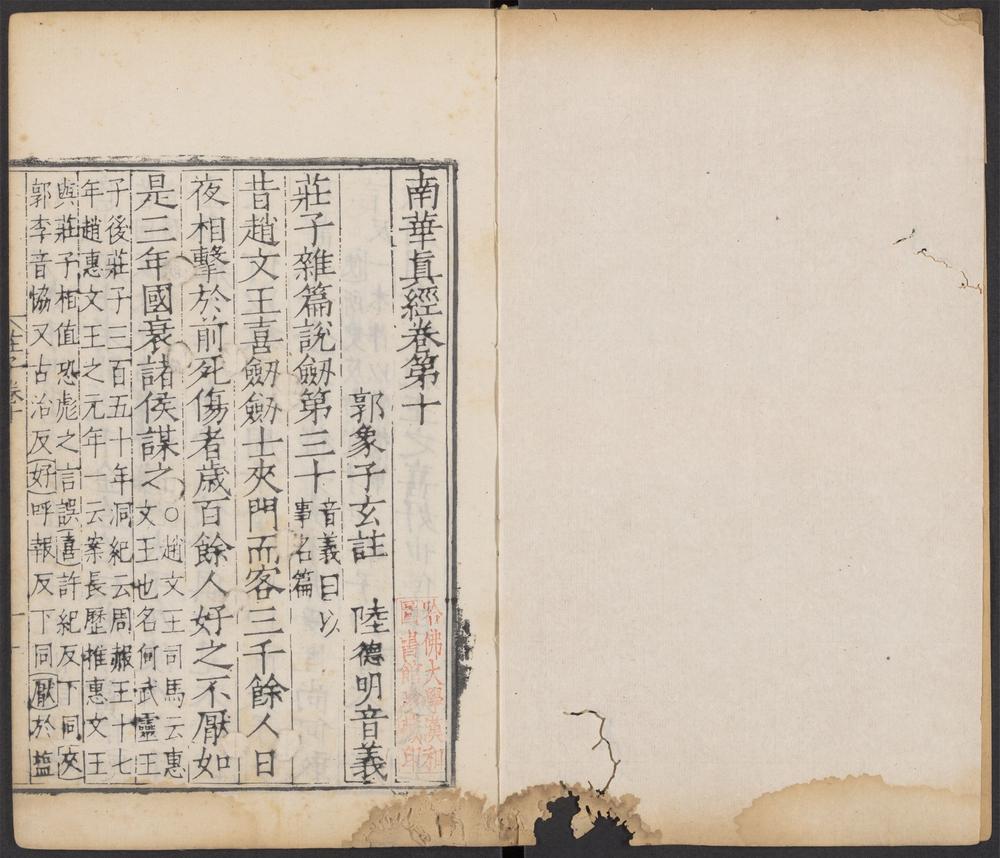 南華真經卷第十
郭象子玄註 陸德明音義
莊子雜篇說劒第三十 音義曰以
事名篇
昔趙文王喜劒劒士夾門而客三千餘人日
夜相擊於前死傷者歲百餘人好之不厭如
是三年國衰諸侯謀之 ○趙文王司馬云惠
文王也名何武靈王
子後莊子三百五十年洞紀云周赧王十七
年趙惠文王之元年一云案長歷推惠文王
與莊子相值恐彪之言誤 喜許紀反下同 夾
郭李音協又古洽反 好呼報反下同 厭於鹽
哈佛大學漢和
圖書館珍藏印